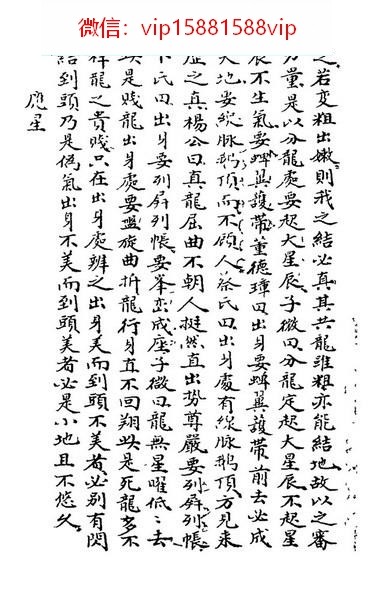 微信：vip15881588vip
之若变粗出嫩則我之結必真其共龍雖粗亦能結地故以之審
力量是以分龍處要起大星辰子微曰分龍定起大星辰不起星
辰不生氣要蟬翼護帶董德璋曰出身要蟬翼護帶前去必成
大地要線脉鵝頂而不顧人蔡氏曰出身處有線脉鵝頂方見来
歷之真楊公曰真龍屈曲不朝人挺然直出势尊嚴要列屏列帳
卜氏曰出身要列屏列帳要峯峦成座子微曰龍無星曜低ミ去
此是賤龍出身處要盤旋曲折龍行身直不回翔此是死龍多不
祥龍之貴賤只在出身處辨之出身美而到頭不美者必别有閃
結到頭乃是偽氣出身不美而到頭美者必是小地且不悠久
應星